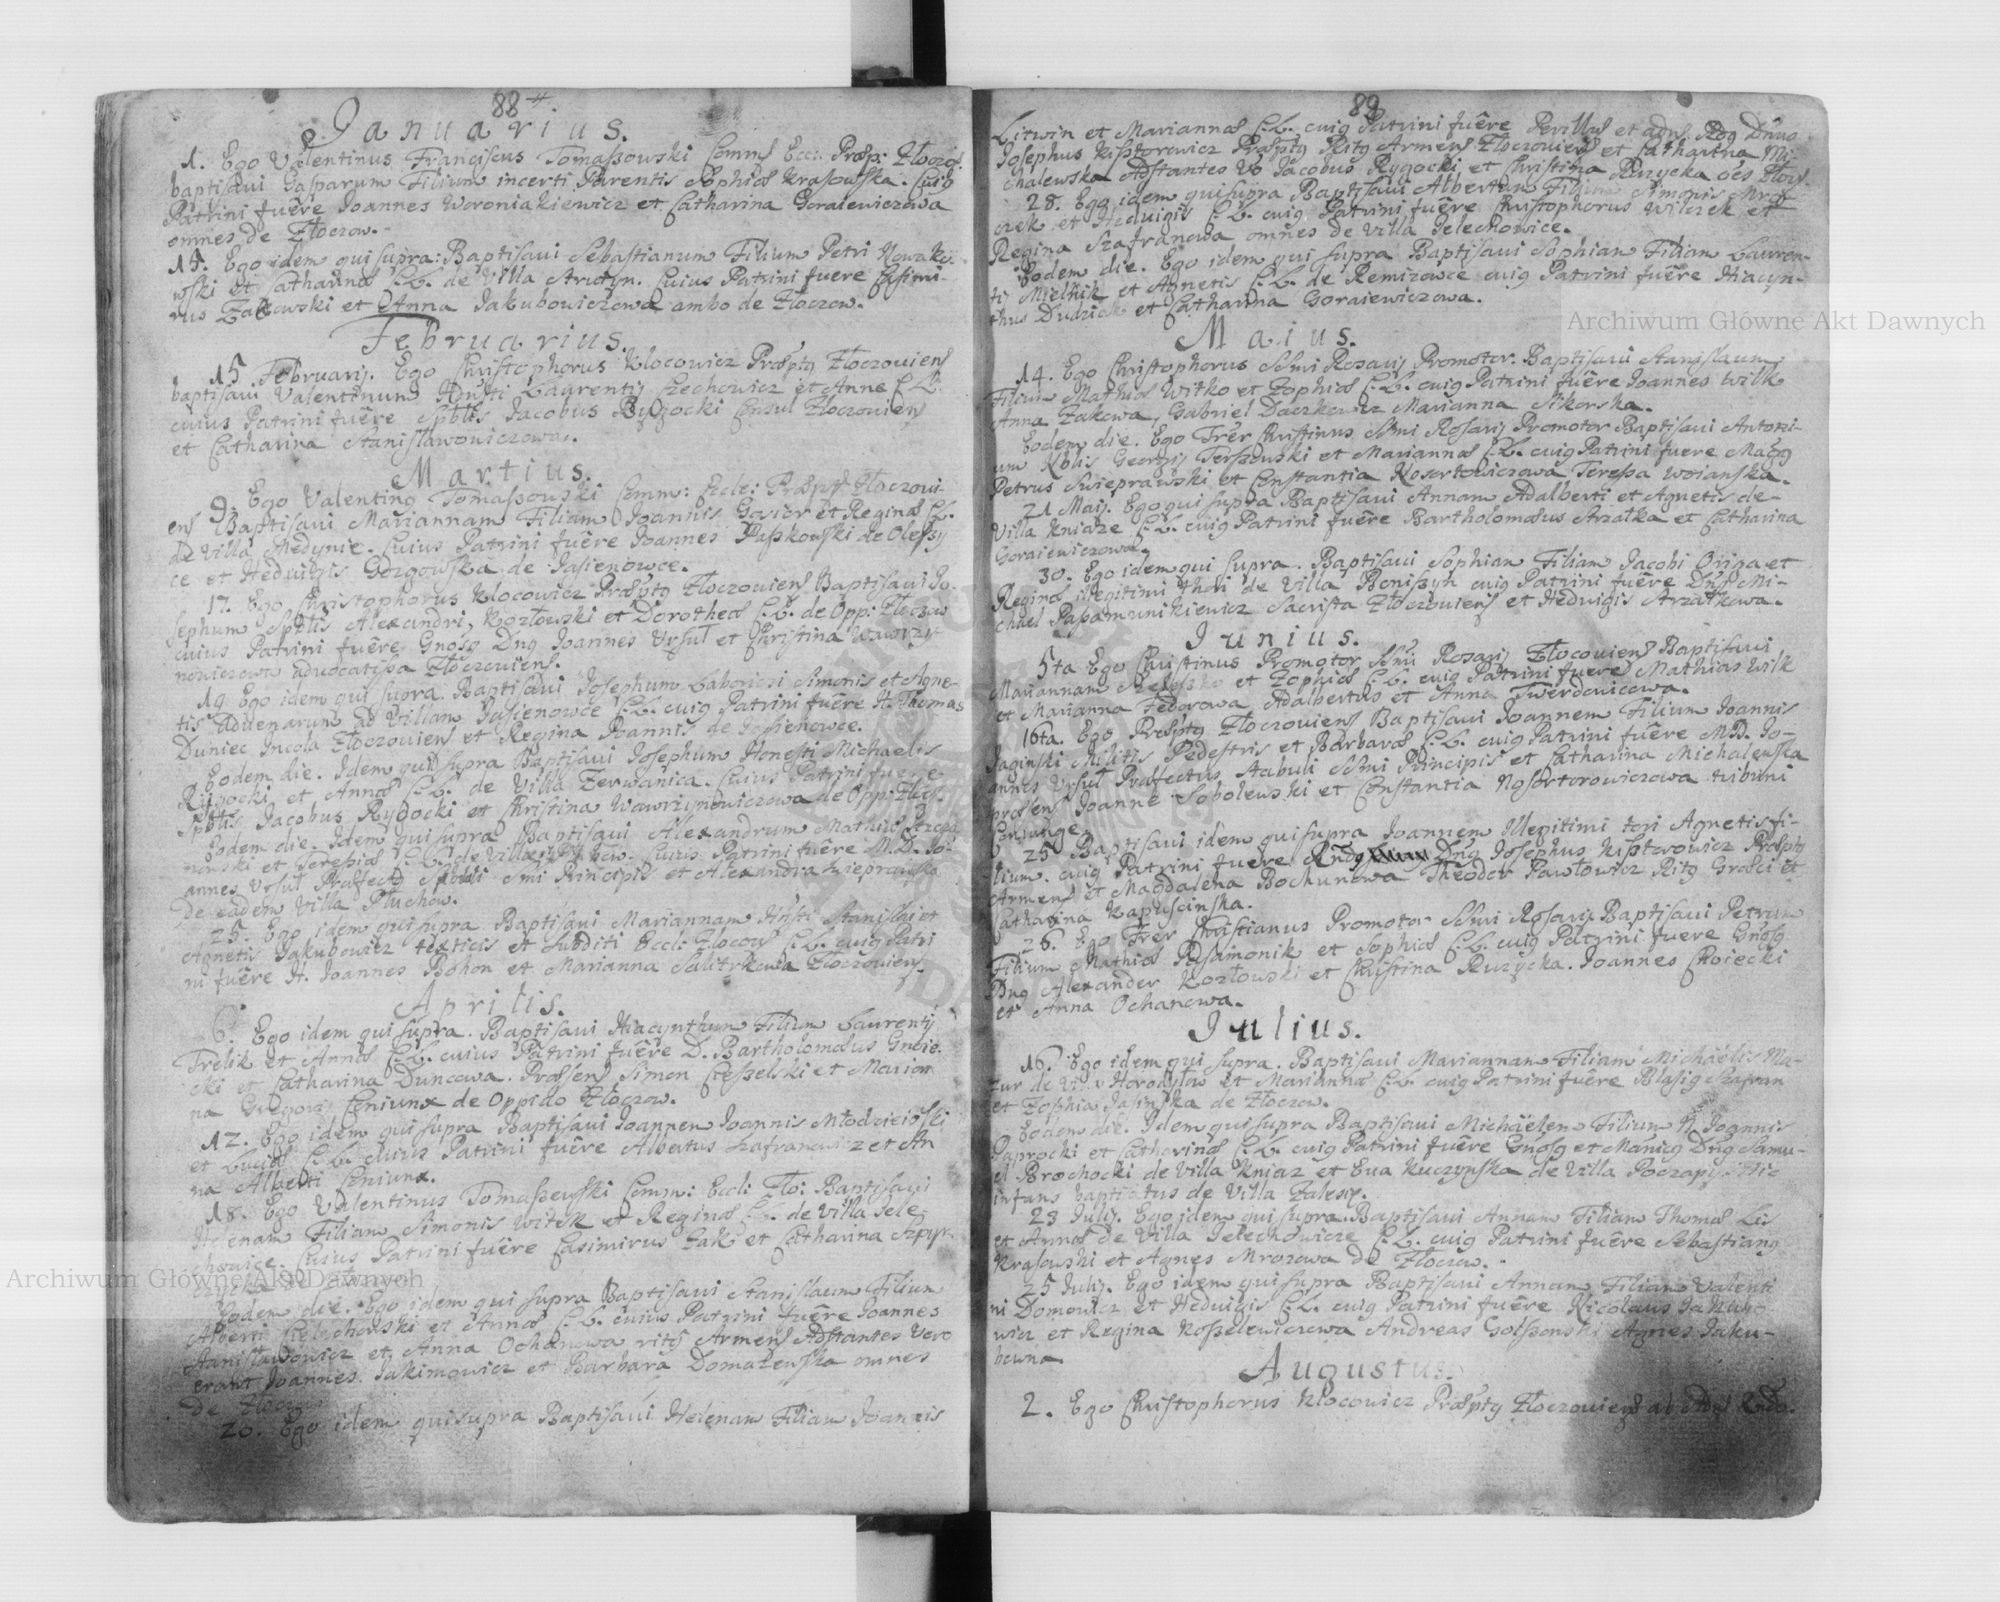 88
Januarius.
1. Ego Valentinus Franciscus Tomaszowski Comm Eccl: Præp: Złoczo
baptisavi Gasparum Filium incerti Parentis Sophiæ Krasowska. Cuig
Patrini fuere Joannes Woroniakiewicz et Catharina Goraiewiczowa
omnes de Złoczow.
15. Ego idem qui supra: Baptisavi Sebastianum Filium Petri Nowako
wski et Catharinæ C.L. de Villa Strutyn. Cuius Patrini fuere Casimi
rus Żakowski et Anna Jakubowiczowa ambo de Złoczow.
Februarius.
15 Februarij. Ego Christophorus Klocowicz Præptg Złoczoviens
baptisavi Valentinum Honsti Laurentij Czechowicz et Anne C.L.
cuius Patrini fuere Spblis Jacobus Rygocki Consul Złoczovien
et Catharina Stanisławowiczowa.
Martius.
9. Ego Valenting Tomaszowski Comm: Eccle: Præpt Złoczovi-
ens Baptisavi Mariannam Filiam Joannis Gąsior et Reginæ C.L.
de Villa Medynie. Cuius Patrini fuere Joannes Paszkowski de Oleszy
ce et Hedvigis Gorgowska de Jasienowce.
17. Ego Christophorus Klocowicz Præptg Złoczoviens Baptisavi Jo-
sephum Spblis Alexandri Kozłowski et Dorotheæ C.L. de Opp: Złoczow
cuius Patrini fuere Gnosg Dng Joannes Ursuł et Christina Wawrzy-
nowiczowa advocatissa Złoczoviens.
19 Ego idem qui supra. Baptisavi Josephum Laboriosi Simonis et Agne-
tis advenarum ad Villam Jasienowce C.L. cuig Patrini fuere H. Thomas
Duniec Incola Złoczoviens et Regina Joannis de Jasienowce.
Eodem die. Idem qui supra Baptisavi Josephum Honesti Michaelis
Rygocki et Annæ C.L. de Villa Zerwanica. Cuius Patrini fuere
Spblis Jacobus Rygocki et Christina Wawrzynowiczowa de Opp: Złocz.
Eodem die. Idem qui supra Baptisavi Alexandrum Mathiæ
nowski et Teressiæ C.L. de Villa Cuius Patrini fuere M.D. Jo-
annes Ursuł Præfectg Stabuli Smi Principis et Alexandra Swieprawska
de eadem Villa Płuchow.
25. Ego idem qui supra Baptisavi Mariannam Hnsti Stanislai et
Agnetis Jakubowicz texticis et subditi Eccl: Złoczow C.L. cuig Patri
ni fuere H. Joannes Bohon et Marianna Salitrkowa Złoczoviens.
Aprilis.
6. Ego idem qui supra. Baptisavi Hiacynthum Filium Laurentij
Trelik et Annæ C.L. cuius Patrini fuere D. Bartholomæus Gnoie-
cki et Catharina Duncowa. Præsens Simon Cieszelski et Marian
na Gregorij Coniunx de Oppido Złoczow.
12. Ego idem qui supra Baptisavi Joannem Joannis Młodzieiowski
et Luciæ C.L. cuius Patrini fuere Albertus Szafranowicz et An
na Alberti Coniunx.
18. Ego Valentinus Tomaszewski Comm: Eccl: Zło: Baptisavi
Helenam Filiam Simonis Witek et Reginæ C.L. de Villa Iele-
chowice. Cuius Patrini fuere Casimirus Żak et Catharina Szpyr-
czycka de Złoczow
Eodem die. Ego idem qui supra Baptisavi Stanislaum Filium
Alberti Cielechowski et Annæ C.L. cuius Patrini fuere Joannes
Stanisławowicz et Anna Ochanowa ritg Armens Adstantes Vero
erant Joannes Jakimowicz et Barbara Domalewska omnes
de Złoczow
20. Ego idem qui supra Baptisavi Helenam Filiam Joannis
89
Litwin et Mariannæ C.L. cuig Patrini fuere Pervillus et adm. Rdg Dnus
Josephus Kisztorowicz Præptg Ritg Armens Złoczoviens et Catharina Mi-
chalewska Adstantes Vo Jacobus Rygocki et Christina Ruzycka oes Złocz.
28. Ego idem qui supra Baptisavi Albertum Filium Simonis Mro
czek et Hedvigis C.L. cuig Patrini fuere Christophorus Wilczek et
Regina Szafranowa omnes de Villa Ielechowice.
Eodem die. Ego idem qui supra Baptisavi Sophiam Filiam Lauren-
tij Mielnik et Agnetis C.L. de Remizowce cuig Patrini fuere Hiacyn-
thus Dudziak et Catharina Goraiewiczowa.
Maius.
14. Ego Christophorus SSmi Rosarij Promotor. Baptisavi Stanislaum
Filium Mathiæ Witko et Zophiæ C.L. cuig Patrini fuere Joannes Wilk
Anna Żakowa, Gabriel Daczkewicz Marianna Sikorska.
Eodem die. Ego Frer Christinus SSmi Rosarij Promotor Baptisavi Antoni-
um Nblis Georgij Terszewski et Mariannæ C.L. cuig Patrini fuere Magg
Petrus Swieprawski et Constantia Nosertowiczowa Teressa Woianska.
21 Maij. Ego qui supra Baptisavi Annam Adalberti et Agnetis de
Villa Kniaże C.L. cuig Patrini fuere Bartholomæus Strzałka et Catharina
Goraiewiczowa.
30. Ego idem qui supra. Baptisavi Sophiam Filiam Jacobi Origa et
Reginæ illegitimi thori de Villa Boniszyn cuig Patrini fuere Dng Mi-
chael Passamunikiewicz Sacrista Złoczoviens et Hedvigis Strzałkowa.
Junius.
5ta Ego Christinus Promotor SSmi Rosarij Złoczoviens Baptisavi
Mariannam et Zophiæ C.L. cuig Patrini fuere Mathias Wilk
et Marianna Fedorowa Adalbertus et Anna Twerdoviczowa.
16ta. Ego Præptg Złoczoviens Baptisavi Joannem Filium Joannis
Jaginski Militis Pedestris et Barbaræ C.L. cuig Patrini fuere M.D. Jo-
annes Ursuł Præfectus Stabuli SSmi Principis et Catharina Michalewska
præsens Joanne Sobolewski et Constantia Nosortorowiczowa tribuni
Coniunge.
25 Baptisavi idem qui supra Joannem Illegitimi tori Agnetis fi-
lium. cuig Patrini fuere Rndg Dng Josephus Kisztorowicz Præptg
Armens et Magdalena Bochunowa Theodor Pawłowicz Ritg Græci et
Catharina Kapuscinska.
26. Ego Frer Christianus Promotor SSmi Rosarij Baptisavi Petrum
Filium Mathiæ Passamonik et Sophiæ C.L. cuig Patrini fuere Gnosg
Dng Alexander Kozłowski et Christina Ruzycka. Joannes Choiecki
et Anna Ochanowa.
Julius.
16. Ego idem qui supra. Baptisavi Mariannam Filiam Michaelis Ma-
zur de Villa Horodysłow et Mariannæ C.L. cuig Patrini fuere Blasig Szafran
et Zophia Jasinska de Złoczow.
Eodem die. Idem qui supra Baptisavi Michaëlem Filium H. Joannis
Paprocki et Catharinæ C.L. cuig Patrini fuere Gnosg et Mancg Dng Samu-
el Brochocki de Villa Kniaz et Eva Kuczynska de Villa Poczapy. Hic
infans baptizatus de Villa Zalesy.
23 Julij. Ego idem qui supra. Baptisavi Annam Filiam Thomæ Lis
et Annæ de Villa Ielechowicze C.L. cuig Patrini fuere Sebastiang
Krasowski et Agnes Mrozowa de Złoczow.
25 Julij. Ego idem qui supra Baptisavi Annam Filiam Valenti
ni Domowicz et Hedvigis C.L. cuig Patrini fuere Nicolaus Jakubo
wicz et Regina Kosszelewiczowa Andreas Goiszowski Agnes Jaku-
bowna
Augustus.
2. Ego Christophorus Klocowicz Præptg Złoczoviens ab Adm Rndo.
Archiwum Główne Akt Dawnych
Archiwum Główne Akt Dawnych